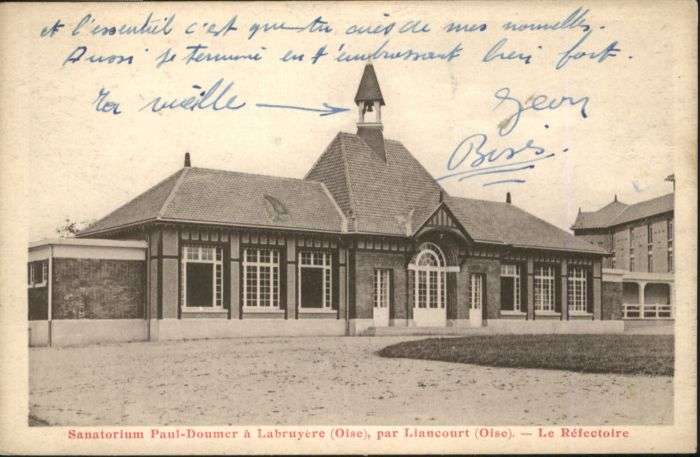 et l'essentiel c'est que tu aies de mes nouvelles.
Aussi je termine en t'embrassant bien fort.
Ta vieille
Bises.
Sanatorium Paul-Doumer à Labruyère (Oise), par Liancourt (Oise). — Le Réfectoire